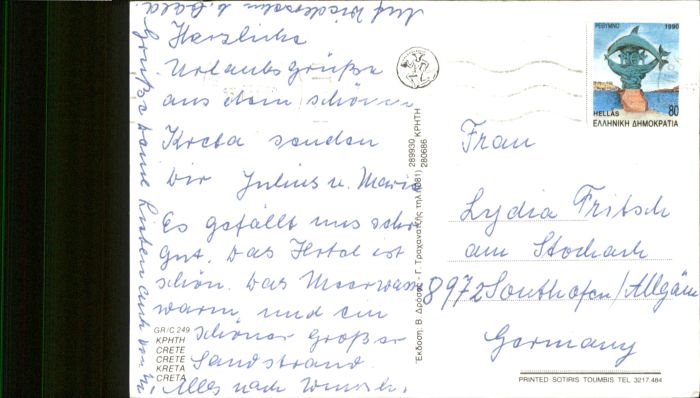 Auf Wiedersehn b. Bald.
Herzliche
Urlaubsgrüße
aus dem schönen
Kreta senden
Dir Julius u. Maria
Es gefällt uns sehr
gut. Das Hotel ist
schön. Das Meerwasser
warm, und ein
schöner großer
Sandstrand.
Alles nach Wunsch.
Grüße Deine Lieben auch von
GR/C 249
ΚΡΗΤΗ
CRETE
CRETE
KRETA
CRETA
Έκδοση: Β. Δρόσος - Γ. Τραχανατζής τηλ. (081) 289930 ΚΡΗΤΗ
280686
ΡΕΘΥΜΝΟ 1990
HELLAS 80
ΕΛΛΗΝΙΚΗ ΔΗΜΟΚΡΑΤΙΑ
Frau
Lydia Fritsch
am Stocach
8972 Sonthofen/Allgäu
Germany
PRINTED SOTIRIS TOUMBIS TEL 3217 484